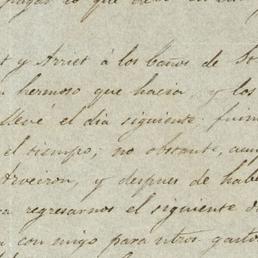 pagar lo que
t y Arriet á los baños de
hermoso que hacia y los
llevé el dia siguiente
el tiempo; no obstante,
Arveiron, y despues de
regresarnos el siguiente
con migo para otros gastos